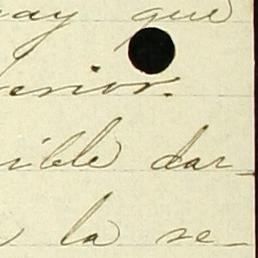 hay que
erior.
ible dar-
la se-